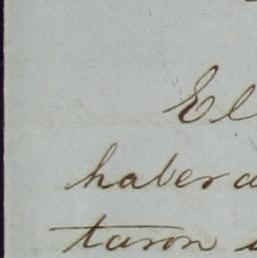 El
haber a
taron